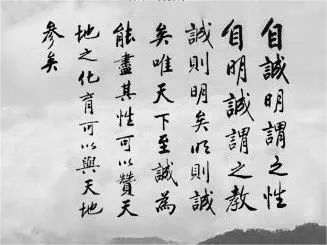 自誠明謂之性
自明誠謂之教
誠則明矣明則誠
矣唯天下至誠為
能盡其性可以贊天
地之化育可以與天地
參矣